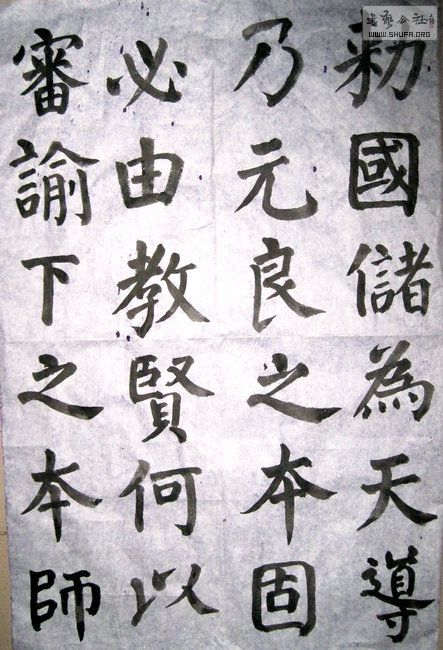 勑國儲為天導
乃元良之本固
必由教賢何以
審諭下之本師
書藝公社
WWW.SHUFA.ORG